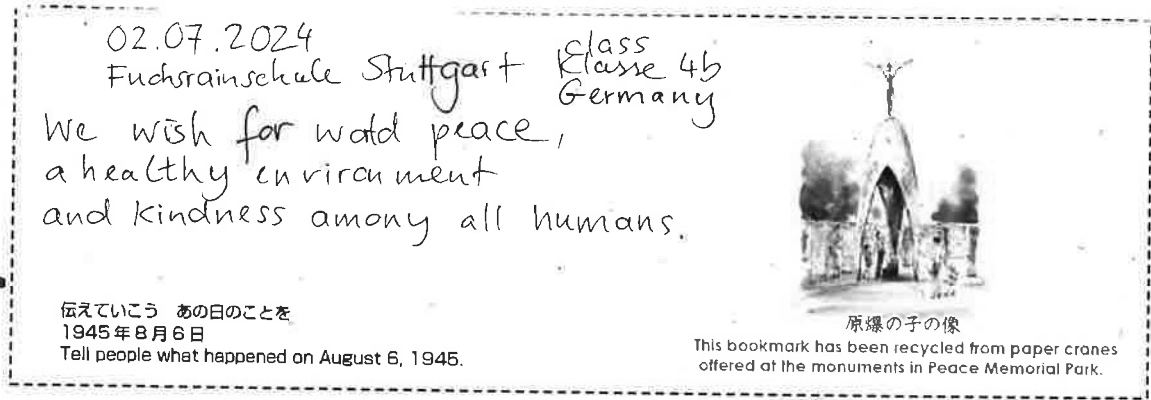 02.07.2024
Fuchsrainschule Stuttgart
class
Klasse 4b
Germany
We wish for world peace,
a healthy environment
and kindness among all humans.
伝えていこう あの日のことを
1945年8月6日
Tell people what happened on August 6, 1945.
原爆の子の像
This bookmark has been recycled from paper cranes
offered at the monuments in Peace Memorial Park.